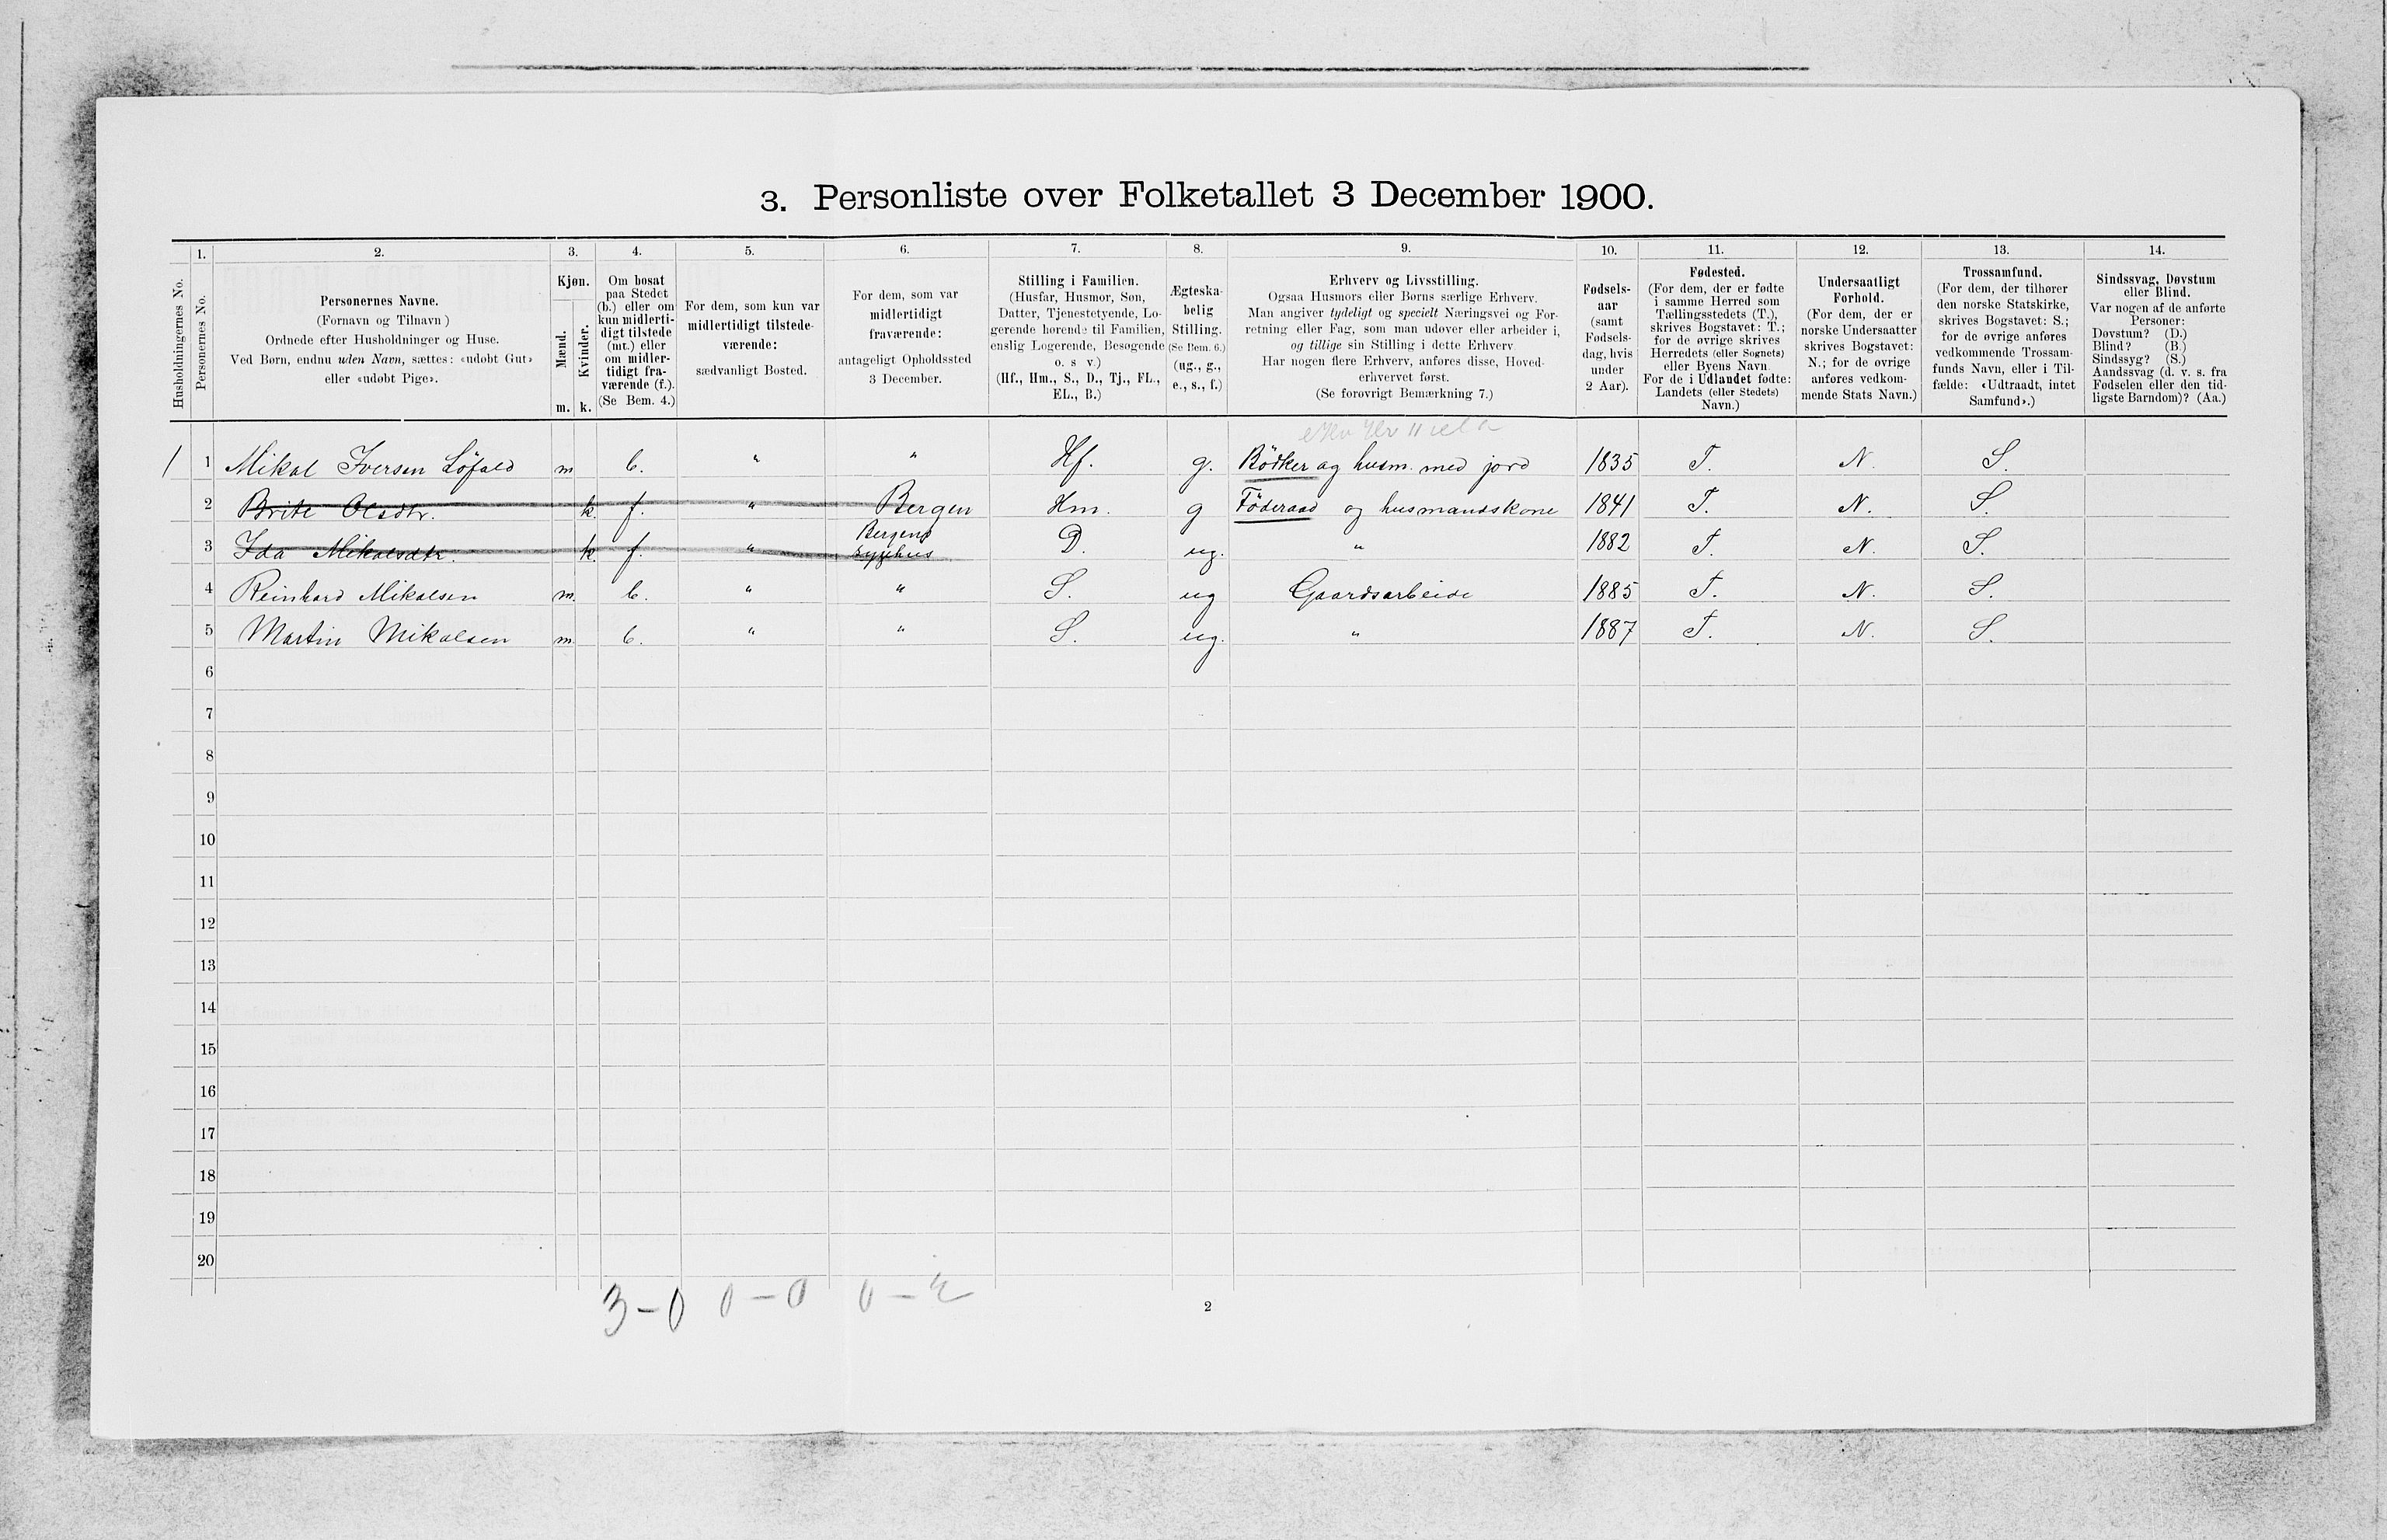 3. Personliste over Folketallet 3 December 1900.
1. 2. 3. 4. 5. 6. 7. 8. 9. 10. 11. 12. 13. 14.
Husholdningernes No.
Personernes No.
Personernes Navne.
(Fornavn og Tilnavn)
Ordnede efter Husholdninger og Huse.
Ved Børn, endnu uden Navn, sættes: «udøbt Gut»
eller «udøbt Pige».
Kjøn.
Mænd.
Kvinder.
m. k.
Om bosat
paa Stedet
(b.) eller om
kun midlerti-
digt tilstede
(mt.) eller
om midler-
tidigt fra-
værende (f.).
(Se Bem. 4.)
For dem, som kun var
midlertidigt tilstede-
værende:
sædvanligt Bosted.
For dem, som var
midlertidigt
fraværende:
antageligt Opholdssted
3 December.
Stilling i Familien.
(Husfar, Husmor, Søn,
Datter, Tjenestetyende, Lo-
gerende hørende til Familien,
enslig Logerende, Besøgende
o. s v.)
(Hf., Hm., S., D., Tj., FL.,
EL., B.)
Ægteska-
belig
Stilling.
(Se Bem. 6.)
(ug., g.,
e., s., f.)
Erhverv og Livsstilling.
Ogsaa Husmors eller Børns særlige Erhverv.
Man angiver tydeligt og specielt Næringsvei og For-
retning eller Fag, som man udøver eller arbeider i,
og tillige sin Stilling i dette Erhverv.
Har nogen flere Erhverv, anføres disse, Hoved-
erhvervet først.
(Se forøvrigt Bemærkning 7.)
Fødsels-
aar
(samt
Fødsels-
dag, hvis
under
2 Aar).
Fødested.
(For dem, der er fødte
i samme Herred som
Tællingsstedets (T.),
skrives Bogstavet: T.;
for de øvrige skrives
Herredets (eller Sognets)
eller Byens Navn.
For de i Udlandet fødte:
Landets (eller Stedets)
Navn.)
Undersaatligt
Forhold.
(For dem, der er
norske Undersaatter
skrives Bogstavet:
N.; for de øvrige
anføres vedkom-
mende Stats Navn.)
Trossamfund.
(For dem, der tilhører
den norske Statskirke,
skrives Bogstavet: S.;
for de øvrige anføres
vedkommende Trossam-
funds Navn, eller i Til-
fælde: «Udtraadt, intet
Samfund».)
Sindssvag, Døvstum
eller Blind.
Var nogen af de anførte
Personer:
Døvstum? (D.)
Blind? (B.)
Sindssyg? (S.)
Aandssvag (d. v. s. fra
Fødselen eller den tid-
ligste Barndom)? (Aa.)
1 1 Mikal Iversen Löfald m b. " " Hf. g. Bödker og husm. med jord 1835 T. N. S.
2 Brite Olsdtr. k. f. " Bergen Hm. g Föderaad og husmandskone 1841 T. N. S.
3 Ida Mikalsdtr. k. f. " Bergens Sygehus D. ug. " 1882 T. N. S.
4 Reinhard Mikalsen m. b. " " S. ug Gaardsarbeide 1885 T. N. S.
5 Martin Mikalsen m. b. " " S. ug. " 1887 T. N. S.
6
7
8
9
10
11
12
13
14
15
16
17
18
19
20
3-0 0-0 0-2
2